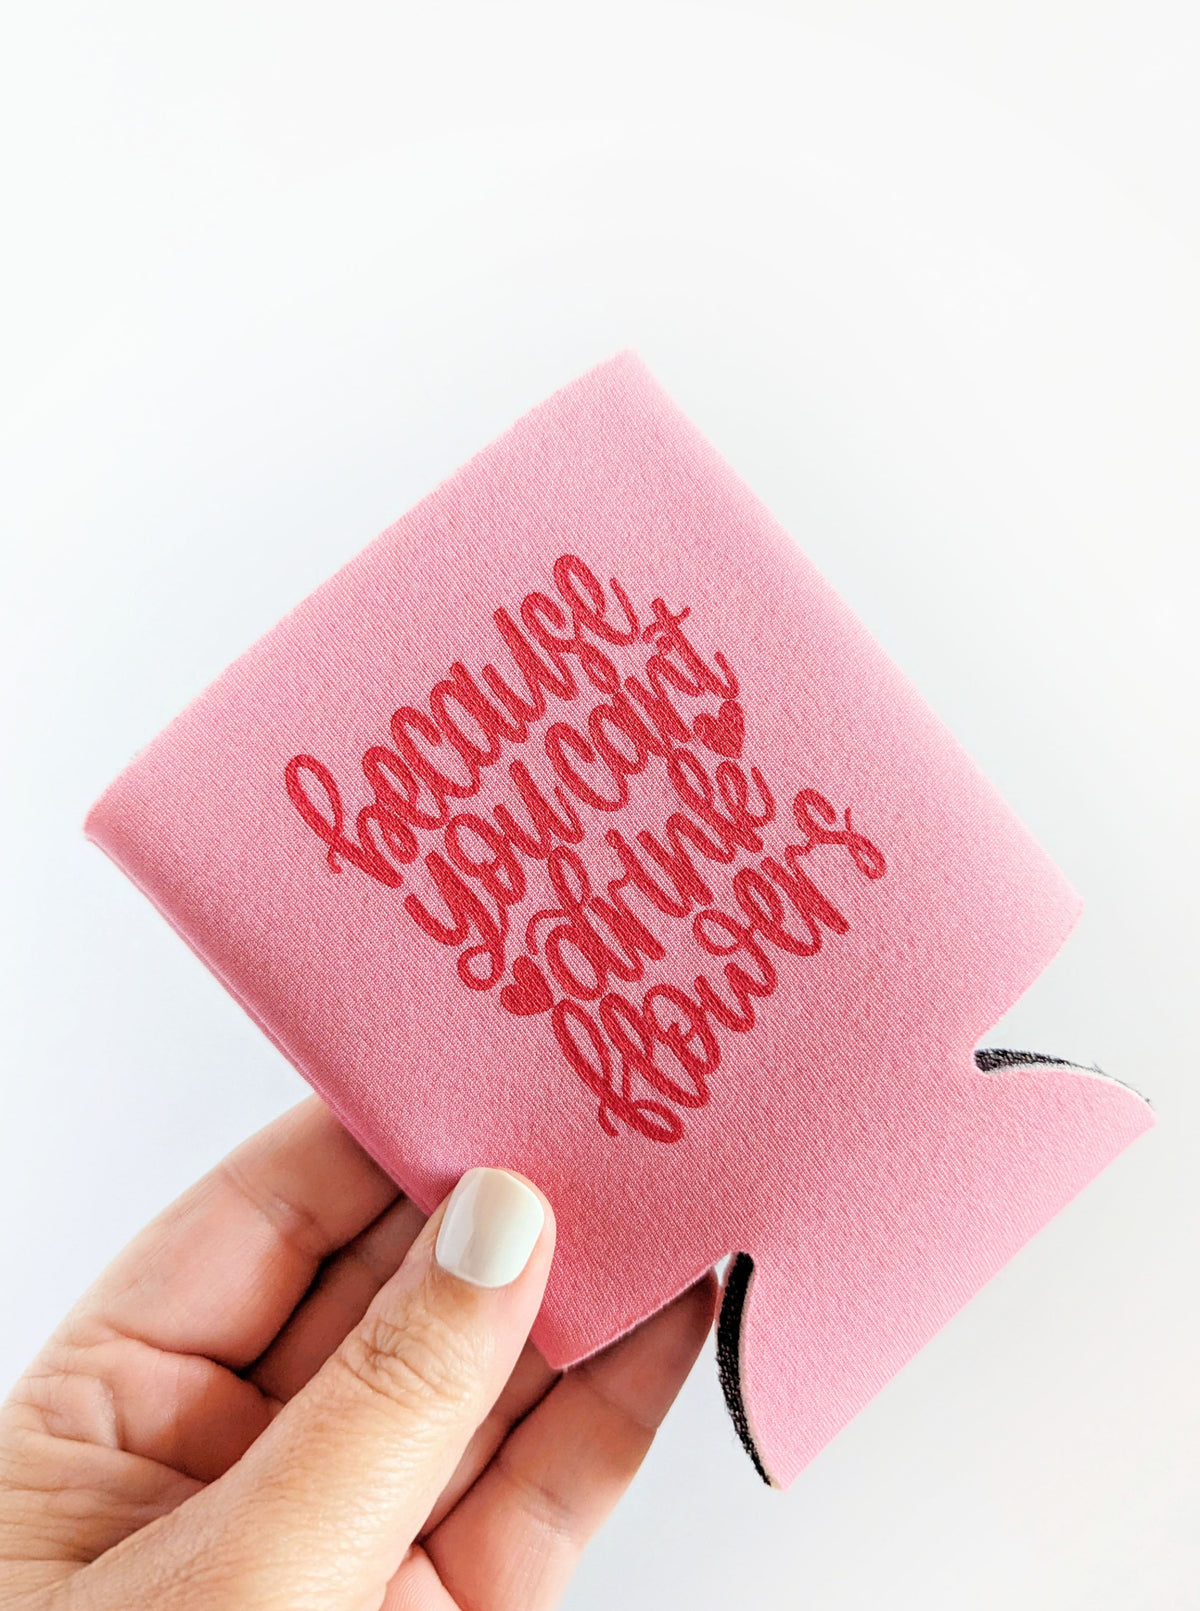 because
you can't
drink
flowers